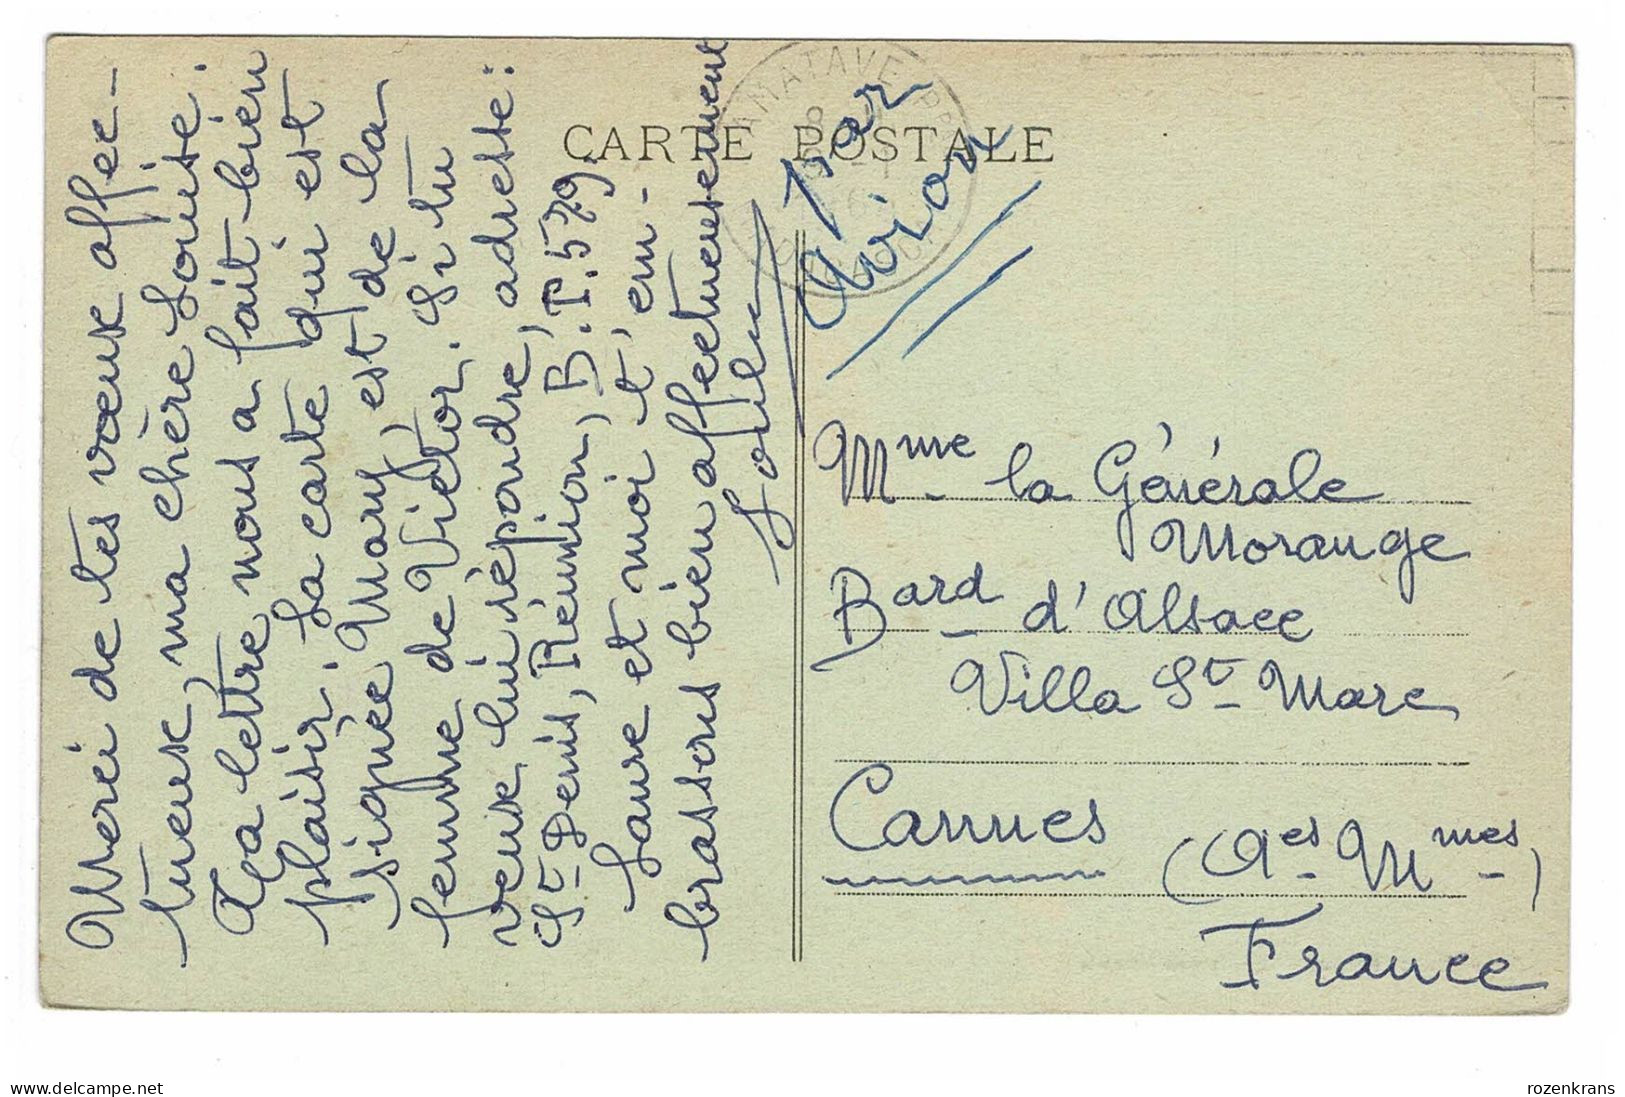 Merci de tes vœux affec-
tueux, ma chère Louise.
Ta lettre nous a fait bien
plaisir. La carte qui est
signée Mary, est de la
femme de Victor. Si tu
veux lui répondre, adresse :
St Denis, Réunion, B.P. 579.
Laure et moi t'em-
brassons bien affectueusement
CARTE POSTALE
TAMATAVE PPAL
MADAGASCAR
Par
Avion
Mme la Générale
Morange
Bard d'Alsace
Villa St Marc
Cannes
(Aes Mmes)
France
www.delcampe.net
rozenkrans